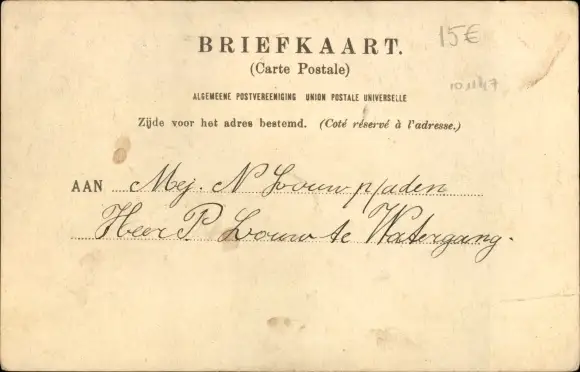 15€
BRIEFKAART.
(Carte Postale)
ALGEMEENE POSTVEREENIGING UNION POSTALE UNIVERSELLE
Zijde voor het adres bestemd. (Coté réservé à l'adresse.)
AAN Mej. N Louw p/aden
Heer P. Louw te Watergang.